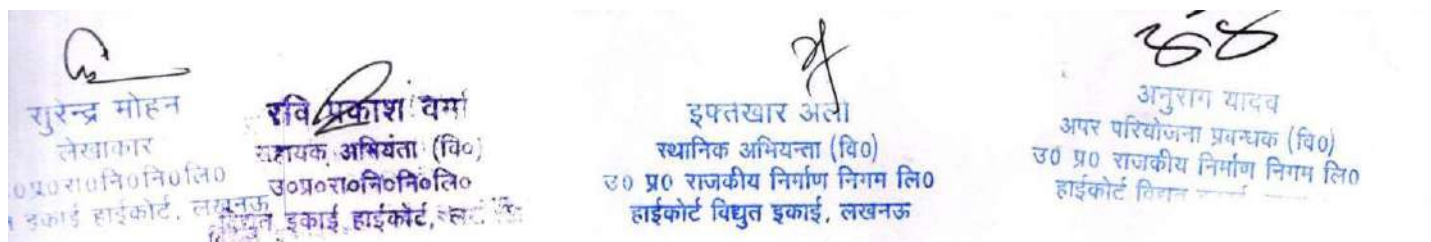 सुरेन्द्र मोहन
लेखाकार
उ०प्र०रा०नि०नि०लि०
इकाई हाईकोर्ट, लखनऊ
रवि प्रकाश वर्मा
सहायक अभियंता (वि०)
उ०प्र०रा०नि०नि०लि०
विद्युत इकाई, हाईकोर्ट,
इफ्तखार अली
स्थानिक अभियन्ता (वि०)
उ० प्र० राजकीय निर्माण निगम लि०
हाईकोर्ट विधुत इकाई, लखनऊ
अनुराग यादव
अपर परियोजना प्रबन्धक (वि०)
उ० प्र० राजकीय निर्माण निगम लि०
हाईकोर्ट विद्युत